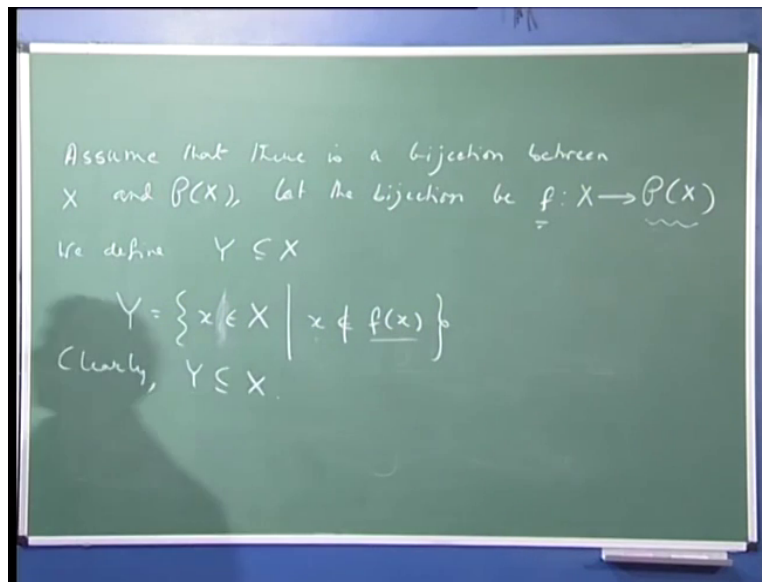 Assume that there is a bijection between
X and P(X), Let the bijection be f : X → P(X)
We define Y ⊆ X
Y = { x ∈ X | x ∉ f(x) }.
Clearly, Y ⊆ X.